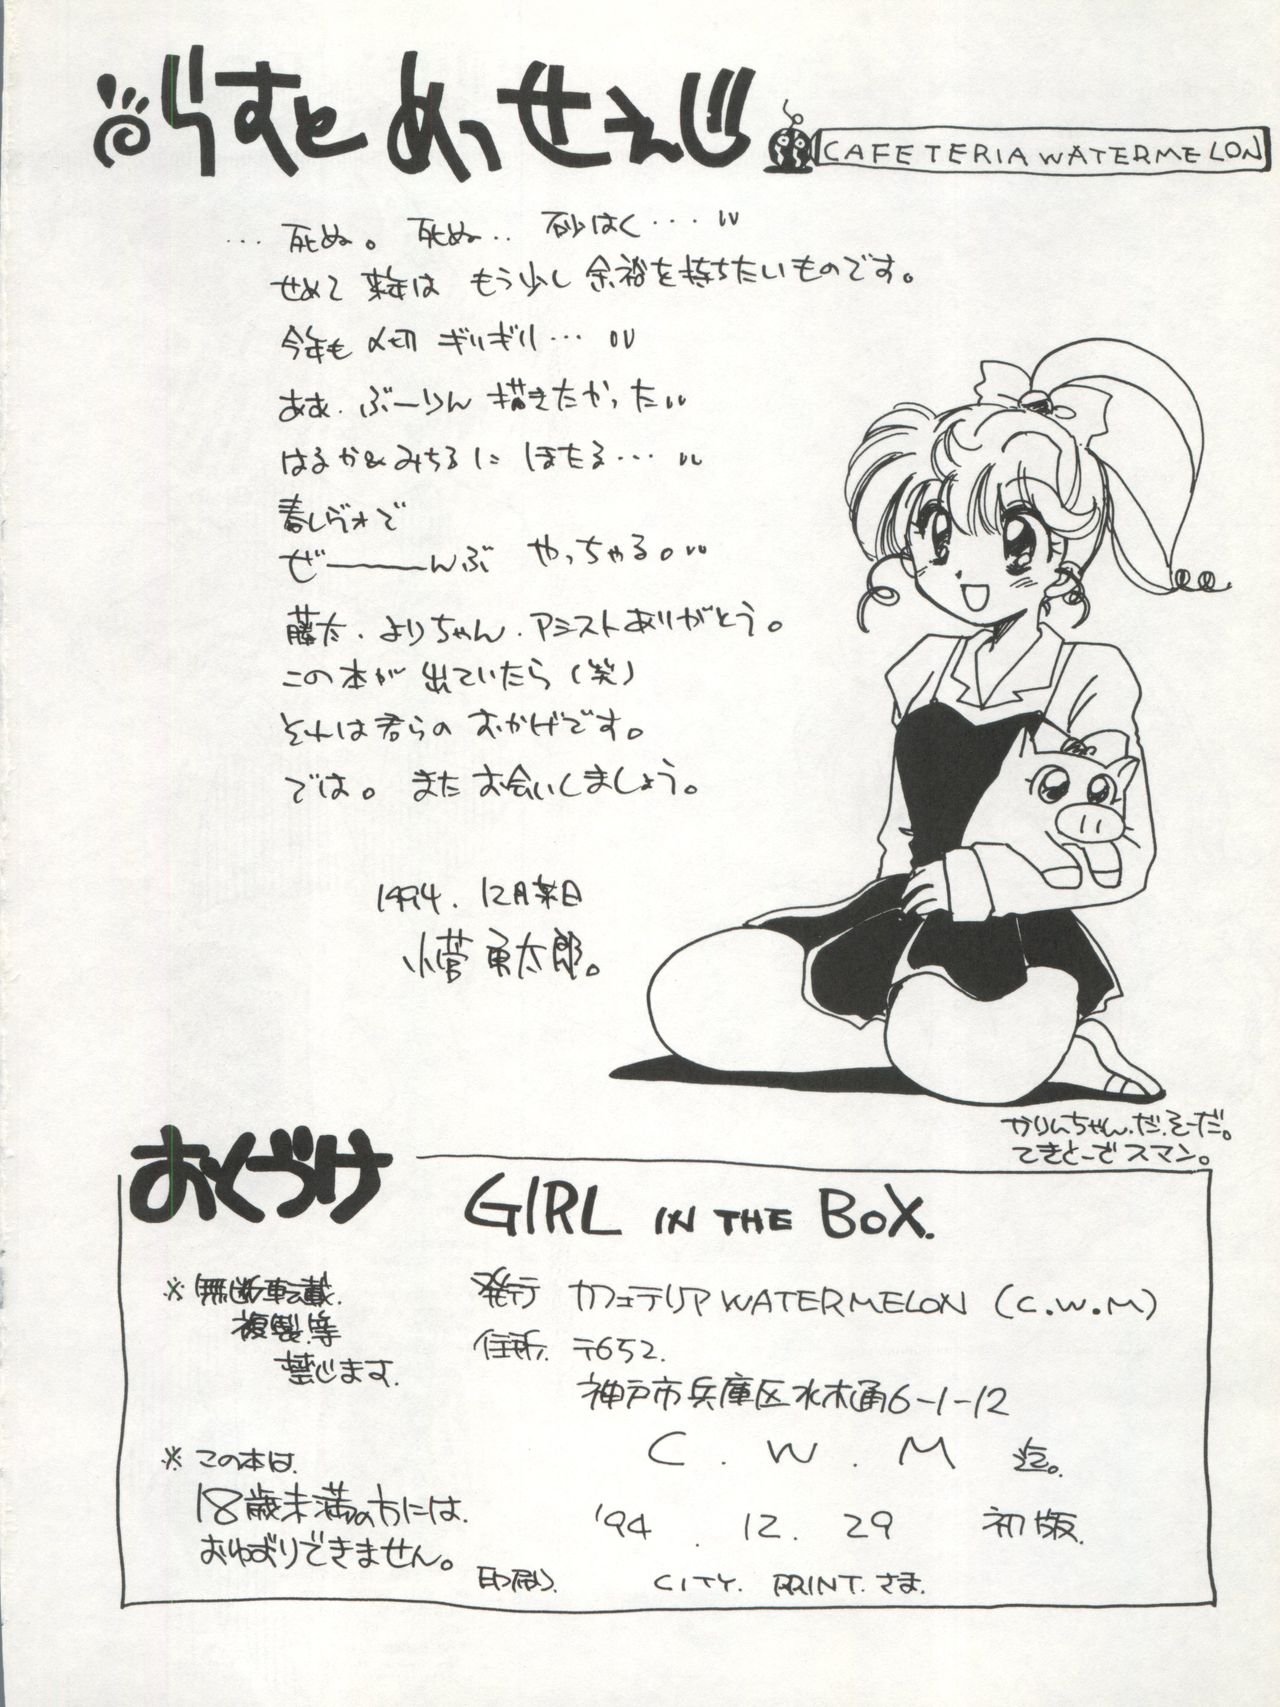 らすと めっせえじ
CAFETERIA WATERMELON
… 死ぬ。 死ぬ‥ 砂はく…
せめて 来年は もう少し 余裕を持ちたいものです。
今年も 〆切 ギリギリ…
ああ. ぶーりん 描きたかった
はるか&みちるに ほたる…
春レヴォで
ぜーーーんぶ やっちゃる。
藤太.よりちゃん.アシストありがとう。
この本が 出ていたら(笑)
それは君らの おかげです。
では。 また お会いしましょう。
1994. 12月某日
小菅 勇太郎。
かりんちゃん.だ.そーだ。
てきとーでスマン。
おくづけ
GIRL IN THE BOX.
※無断転載.
複製等
禁じます.
発行 カフェテリアWATERMELON (C.W.M)
住所. 〒652.
神戸市兵庫区水木通6-1-12
C . W . M 迄。
※この本は.
18歳未満の方には.
おゆずりできません。
'94 . 12. 29 初版.
印刷. CITY. PRINT.さま.